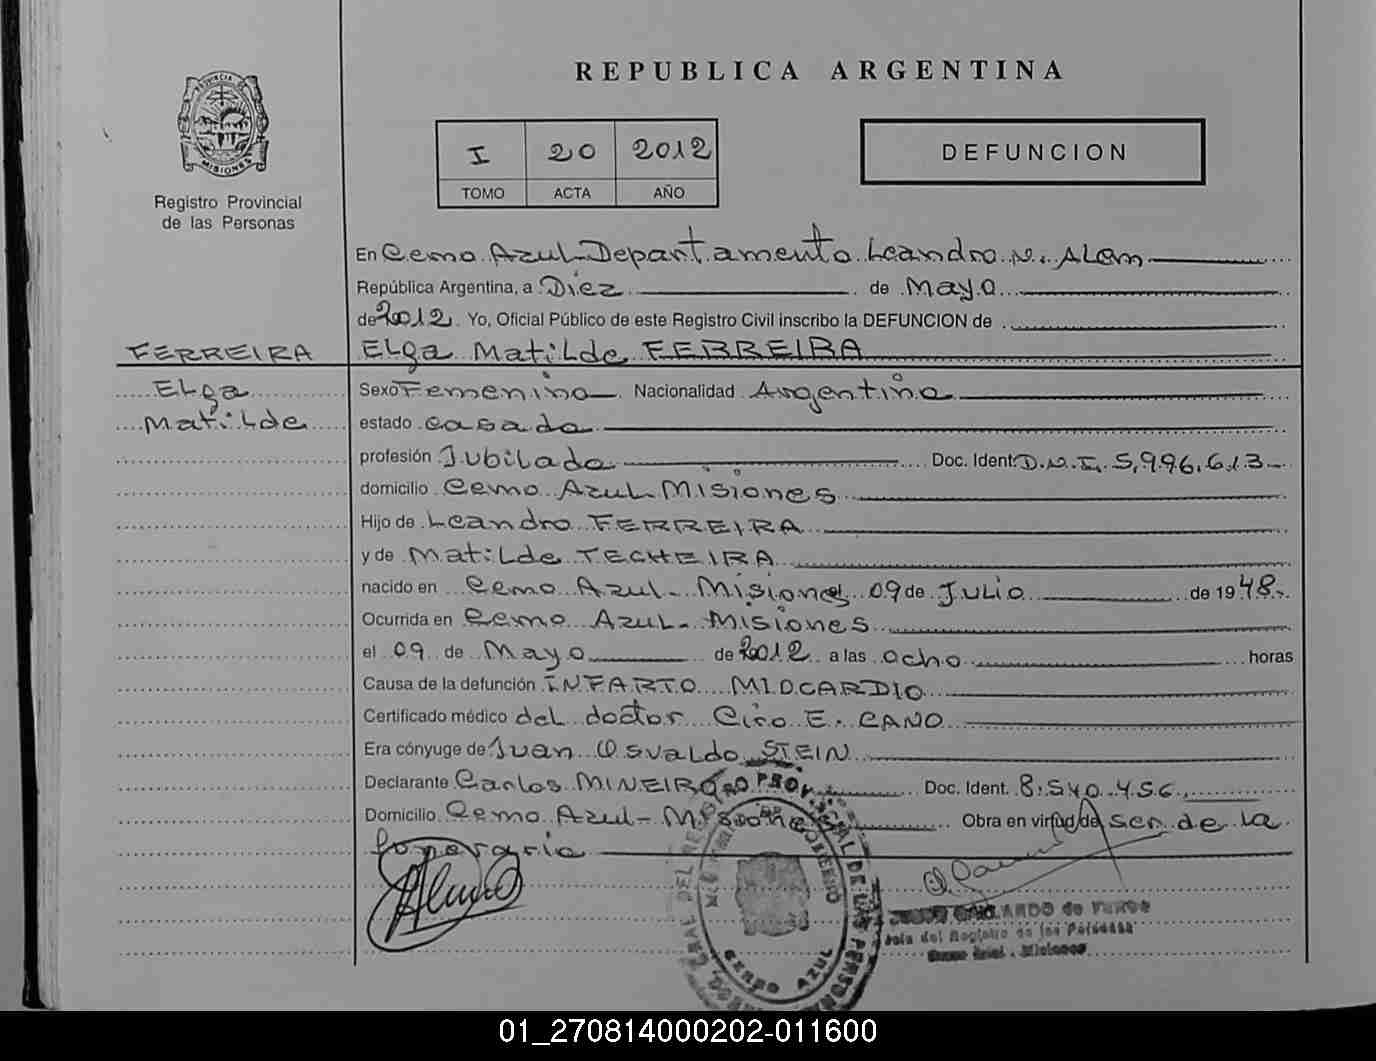 REPUBLICA ARGENTINA
PROVINCIA DE
MISIONES
Registro Provincial
de las Personas
I 20 2012
TOMO ACTA AÑO
DEFUNCION
En Cerro Azul-Departamento Leandro N. Alem
República Argentina, a Diez de Mayo
de 2012. Yo, Oficial Público de este Registro Civil inscribo la DEFUNCION de
FERREIRA
Elga Matilde FERREIRA
Elga
Matilde
Sexo Femenino Nacionalidad Argentina
estado casada
profesión Jubilada Doc. Ident. D.N.I. 5.996.613
domicilio Cerro Azul-Misiones
Hijo de Leandro FERREIRA
y de Matilde TECHEIRA
nacido en Cerro Azul-Misiones 09 de Julio de 1948.
Ocurrida en Cerro Azul-Misiones
el 09 de Mayo de 2012 a las ocho horas
Causa de la defunción INFARTO MIOCARDIO
Certificado médico del doctor Ciro E. CANO
Era cónyuge de Juan Osvaldo STEIN
Declarante Carlos MINEIRO Doc. Ident. 8.540.456
Domicilio Cerro Azul-Misiones Obra en virtud de ser de la
funeraria
CERRO AZUL
Jefa del Registro de las Personas
Cerro Azul - Misiones
01_270814000202-011600